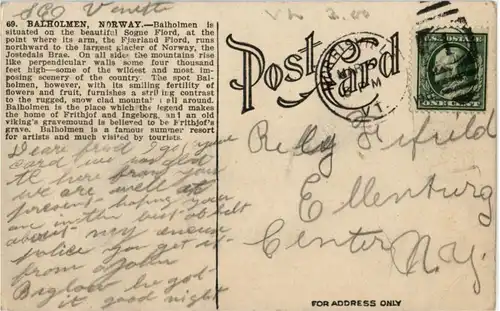 69. BALHOLMEN, NORWAY.—Balholmen is
situated on the beautiful Sogne Fiord, at the
point where its arm, the Fjærland Fiord, runs
northward to the largest glacier of Norway, the
Jostedals Brae. On all sides the mountains rise
like perpendicular walls some four thousand
feet high—some of the wildest and most im-
posing scenery of the country. The spot Bal-
holmen, however, with its smiling fertility of
flowers and fruit, furnishes a striking contrast
to the rugged, snow clad mountains all around.
Balholmen is the place which the legend makes
the home of Frithjof and Ingeborg, and an old
viking's gravemound is believed to be Frithjof's
grave. Balholmen is a famous summer resort
for artists and much visited by tourists.
Post Card
VT.
ONE CENT
Dear I got your
card was glad
to here from you
we are well at
present hoping you
are the best of helth
about my
you get it
from John
Biglow he got
it good night
Ellenburg
Center N.Y.
FOR ADDRESS ONLY